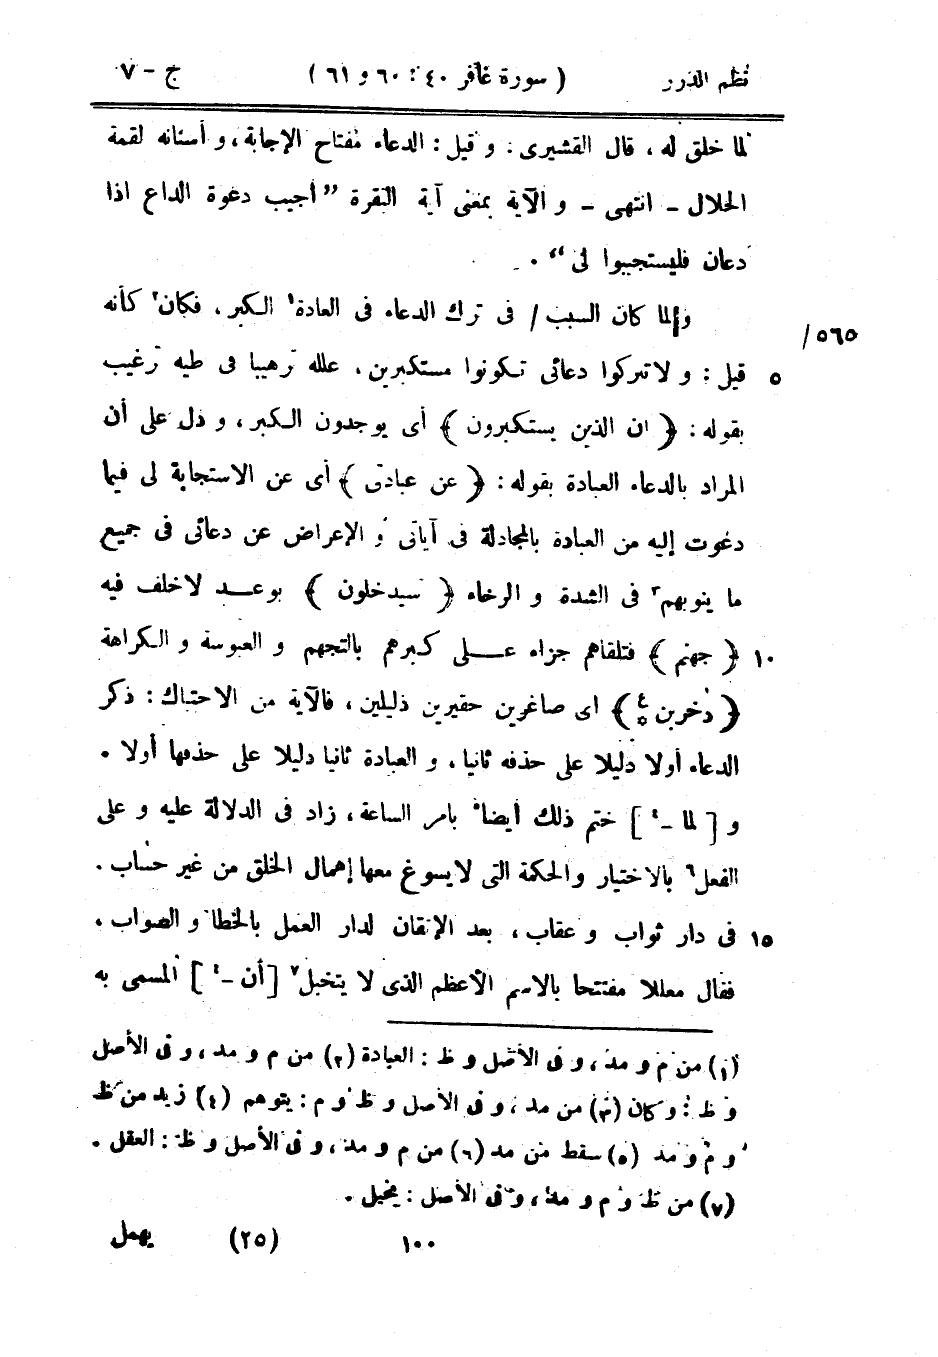 نظم الدرر ( سورة غافر ٤٠ : ٦٠ و ٦١ ) ج - ٧
لما خلق له ، قال القشيرى : و قيل : الدعاء مفتاح الإجابة ، و أسنانه لقمة
الحلال - انتهى - و الآية بمعنى آية البقرة " أجيب دعوة الداع اذا
دعان فليستجيبوا لى " .
و لما كان السبب / فى ترك الدعاء فى العادة١ الكبر ، فكان٢ كأنه ٥٦٥/
قيل : و لا تتركوا دعائى تكونوا مستكبرين ، علله ترهيبا فى طيه ترغيب ٥
بقوله : ﴿ ان الذين يستكبرون ﴾ أى يوجدون الكبر ، و دل على أن
المراد بالدعاء العبادة بقوله : ﴿ عن عبادتى ﴾ أى عن الاستجابة لى فيما
دعوت إليه من العبادة بالمجادلة فى آياتى و الإعراض عن دعائى فى جميع
ما ينوبهم٣ فى الشدة و الرخاء ﴿ سيدخلون ﴾ بوعد لا خلف فيه
﴿ جهنم ﴾ فتلقاهم جزاء على كبرهم بالتجهم و العبوسة و الكراهة ١٠
﴿ دٰخرين ؏ ﴾ اى صاغرين حقيرين ذليلين ، فالآية من الاحتباك : ذكر
الدعاء أولا دليلا على حذفه ثانيا ، و العبادة ثانيا دليلا على حذفها أولا .
و [ لما -٤ ] ختم ذلك أيضا٥ بامر الساعة ، زاد فى الدلالة عليه و على
الفعل٦ بالاختيار والحكمة التى لا يسوغ معها إهمال الخلق من غير حساب .
فى دار ثواب و عقاب ، بعد الإتقان لدار العمل بالخطا و الصواب ، ١٥
فقال معللا مفتتحا بالاسم الأعظم الذى لا يتخيل٧ [ أن -٤ ] المسمى به
(١) من م و مد ، و فى الأصل و ظ : العبادة (٢) من م و مد ، و فى الأصل
و ظ : و كان (٣) من مد ، و فى الأصل و ظ و م : يتوهم (٤) زيد من ظ
و م و مد (٥) سقط من مد (٦) من م و مد ، و فى الأصل و ظ : العقل .
(٧) من ظ و م و مد ، و فى الأصل : يخيل .
١٠٠ (٢٥) يهمل